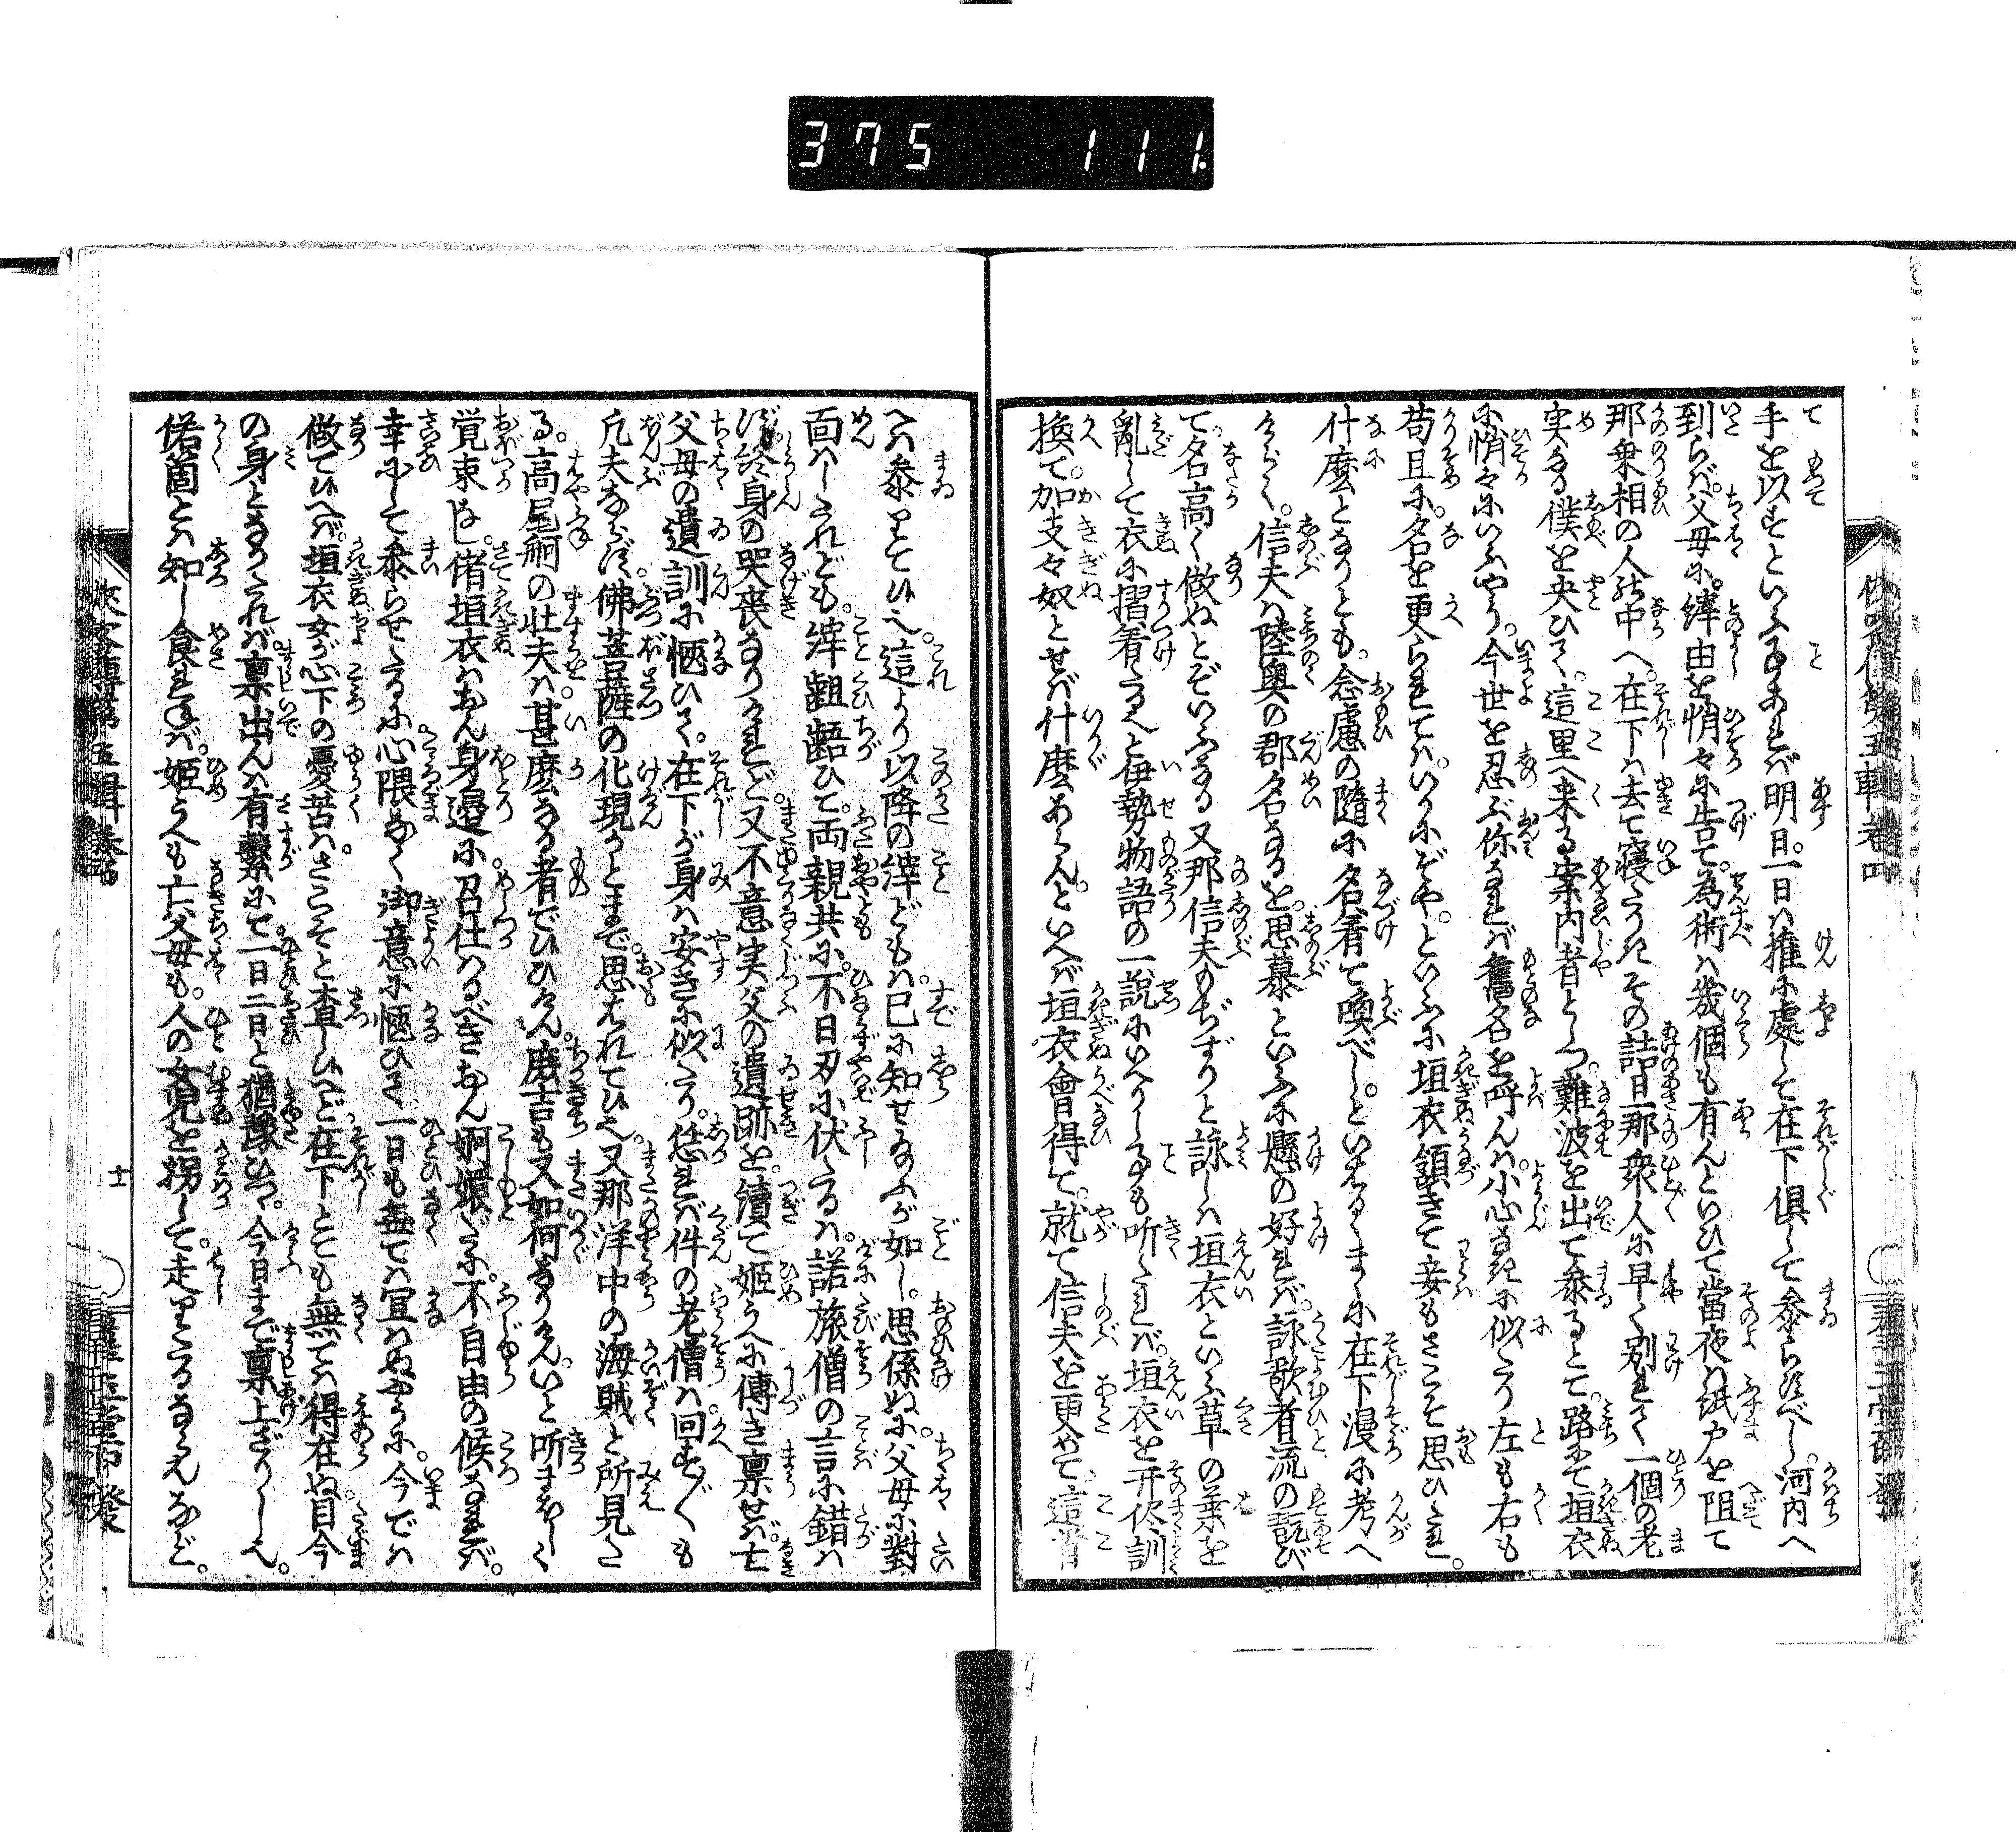 375 111
手を以すといふ事あれば明日一日は推に處して在下倶して參らすべし。河内へ
到らば父母に。縡由を悄々に告て。為術は幾個も有んといひて當夜は紙戸を阻て
那乗相の人的中へ。在下は去て寝たりき。その詰旦那衆人に早く別れて一個の老
実なる僕を央ひて。這里へ来る案内者としつ。難波を出て參るとて。路にて垣衣
に悄々にいふやう。今世を忍ぶ你なれば舊名を呼んは。小心なきに似たり左も右も
苟且に。名を更られては。いかにぞや。といふに垣衣領きて妾もさこそ思ひたれ。
什麼となりとも。念慮の隨に名着て喚べし。といはるゝまゝに在下漫に考へ
けらく。信夫は陸奥の郡名なるを。思慕といふに懸の好れば。詠歌者流の翫び
て。名高く做ぬとぞいふなる又那信夫もぢずりと詠しは垣衣といふ草の葉を
亂して衣に摺着たるへと伊勢物語の一説にいへりし事も听たれば。垣衣を开侭訓
換て。加支々奴とせば什麼あらん。といへば垣衣會得て。就て信夫を更めて。這首
へは參りてひへ。這より以降の縡どもは。已に知せ給ふが如し。思係ぬに。父母に對
面はしたれども。縡齟齬ひて。両親共に。不日刃に伏たるは。諾旅僧の言に錯は
ず。終身の哭喪なりけれど。又不意実父の遺跡を。續て姫うへに傳き稟せば。亡
父母の遺訓に愜ひて。在下が身は安きに似たり。恁れば件の老僧は。回す〲も
凡夫ならず。佛菩薩の化現かとまで。思はれてひへ。又那洋中の海賊と所見た
る。高尾舸の壮夫は。甚麼なる者でひひけん。麼吉も又如何なりけん。いと听まほしく
覚束なし。偖垣衣はおん身邉に召仕はるべきおん婀嬛だに。不自由の候なれば。
幸にして參らせたるに。心隈なく御意に愜ひて。一日も無ては宜はぬやうに。今では
做てひへば。垣衣女が心下の憂苦は。さこそと査しひへど在下とても無ては得在ぬ目今
の身となりたれば。稟出んは有繋にて。一日二日と猶豫ひつ。今日まで稟上ざりしへ。
偌箇とは知し食さねば。姫うへも亡父母も。人の女児を拐して。走りたるならんなど。
十一